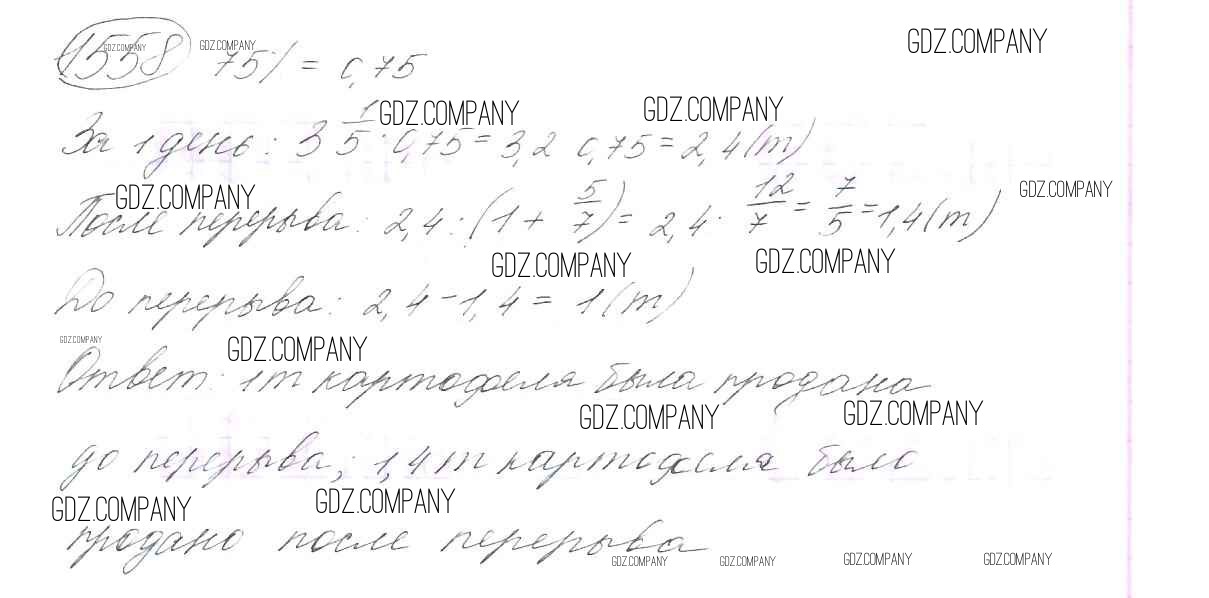 GDZ.COMPANY
1558 GDZ.COMPANY GDZ.COMPANY 75% = 0,75
GDZ.COMPANY GDZ.COMPANY
За 1 день: 3 1/5 · 0,75 = 3,2 0,75 = 2,4 (т)
GDZ.COMPANY GDZ.COMPANY
После перерыва: 2,4 : (1 + 5/7) = 2,4 · 12/7 = 7/5 = 1,4 (т)
GDZ.COMPANY GDZ.COMPANY
До перерыва: 2,4 - 1,4 = 1 (т)
GDZ.COMPANY GDZ.COMPANY
Ответ: 1 т картофеля была продана
GDZ.COMPANY GDZ.COMPANY
до перерыва; 1,4 т картофеля было
GDZ.COMPANY GDZ.COMPANY
продано после перерыва
GDZ.COMPANY GDZ.COMPANY GDZ.COMPANY GDZ.COMPANY